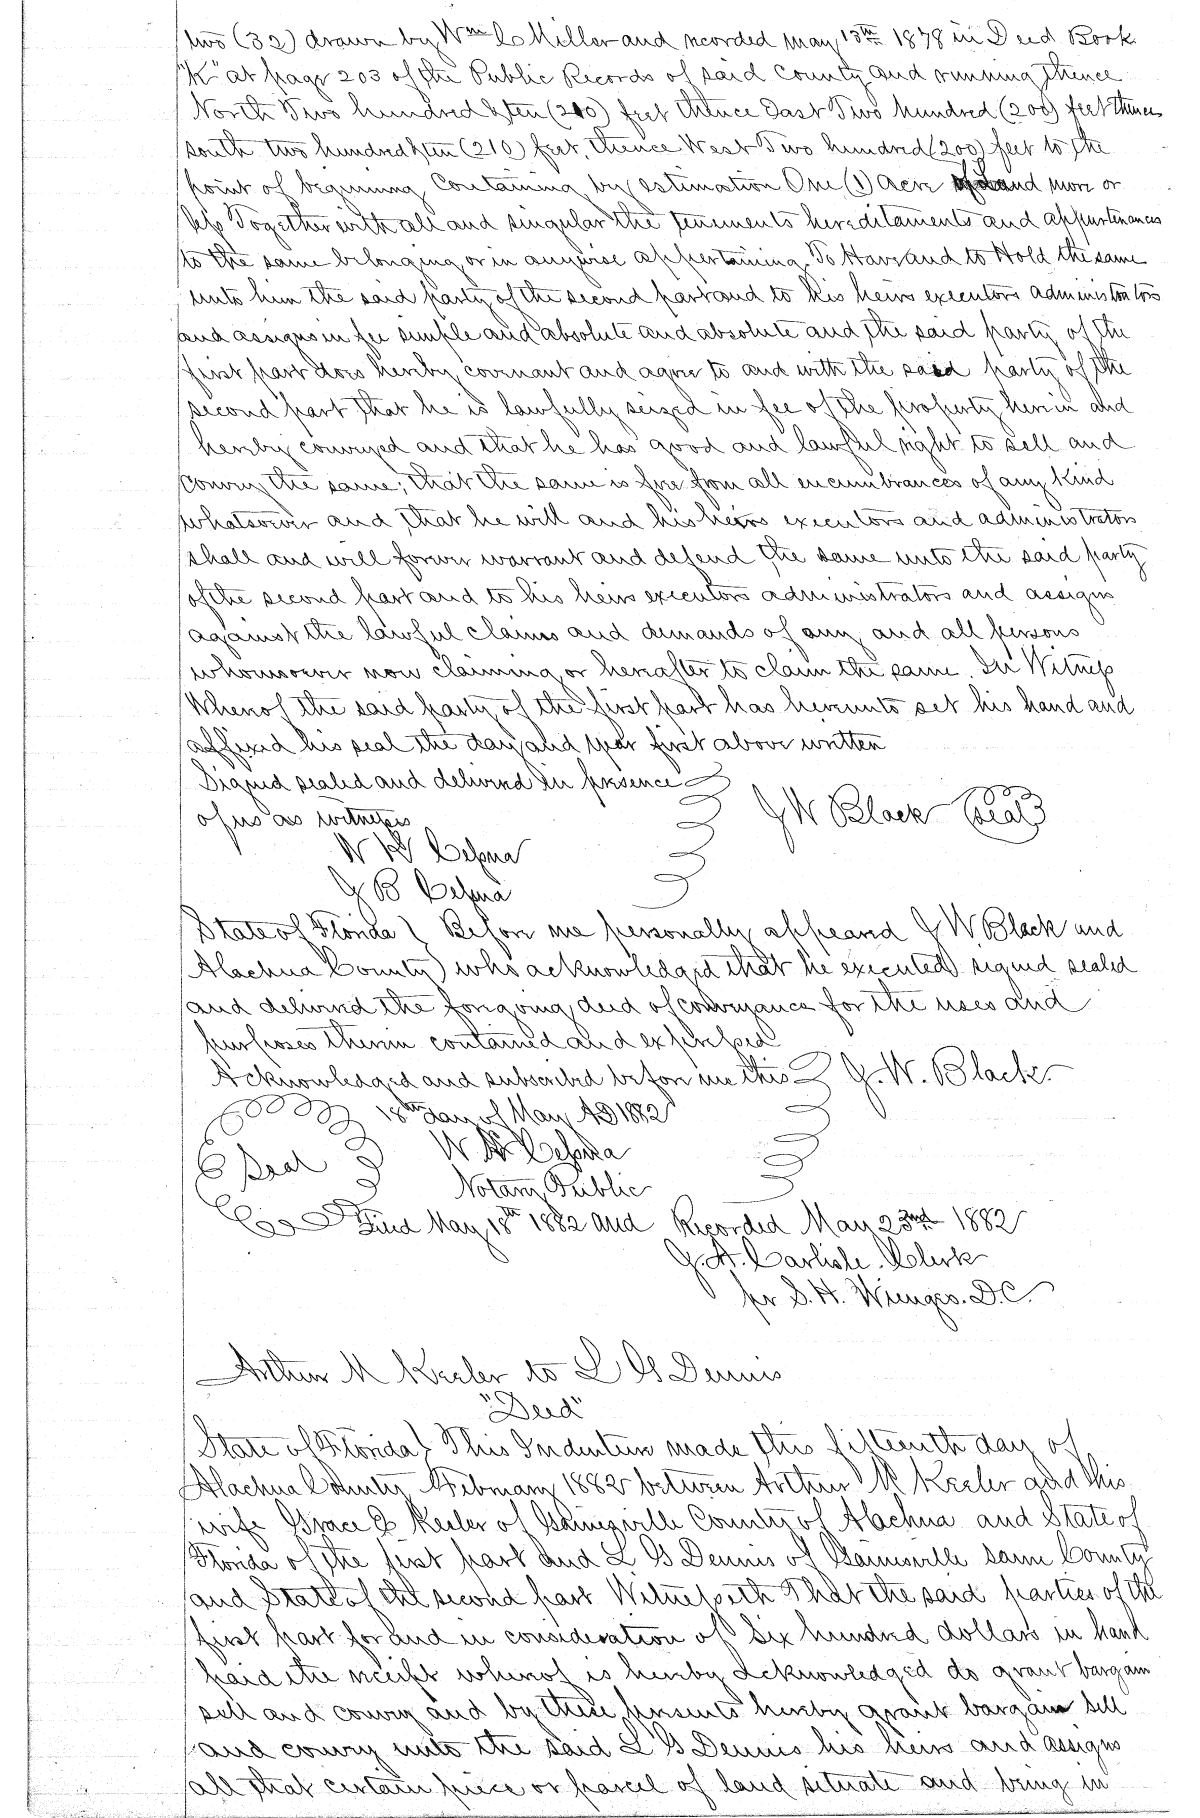 two (32) drawn by Wm C Miller and recorded May 13th 1878 in Deed Book
"K" at page 203 of the Public Records of said County and running thence
North Two hundred & ten (210) feet thence East Two hundred (200) feet thence
south two hundred & ten (210) feet, thence West Two hundred (200) feet to the
point of beginning Containing by estimation One (1) acre of Land more or
less Together with all and singular the tenements hereditaments and appurtenances
to the same belonging or in anywise appertaining. To Have and to Hold the same
unto him the said party of the second part and to his heirs executors administrators
and assigns in fee simple and absolute and absolute and the said party of the
first part does hereby covenant and agree to and with the said party of the
second part that he is lawfully seized in fee of the property herein and
hereby conveyed and that he has good and lawful right to sell and
convey the same; that the same is free from all encumbrances of any kind
whatsoever and that he will and his heirs executors and administrators
shall and will forever warrant and defend the same unto the said party
of the second part and to his heirs executors administrators and assigns
against the lawful claims and demands of any and all persons
whomsoever now claiming or hereafter to claim the same. In Witness
Whereof the said party of the first part has hereunto set his hand and
affixed his seal the day and year first above written
Signed sealed and delivered in presence
of us as witnesses
J W Black (Seal)
W H Cessna
J B Cessna
State of Florida } Before me personally appeared J W Black and
Alachua County } who acknowledged that he executed signed sealed
and delivered the foregoing deed of conveyance for the uses and
purposes therein contained and expressed
Acknowledged and subscribed before me this J. W. Black
18th day of May AD 1882
Seal W H Cessna
Notary Public
Filed May 18th 1882 and Recorded May 23rd 1882
J. A. Carlisle. Clerk
per S. H. Wienges. D.C.
Arthur M Keeler to L G Dennis
"Deed"
State of Florida } This Indenture made this fifteenth day of
Alachua County February 1882 between Arthur M Keeler and his
wife Grace E Keeler of Gainesville County of Alachua and State of
Florida of the first part and L G Dennis of Gainesville same County
and State of the second part Witnesseth That the said parties of the
first part for and in consideration of Six hundred dollars in hand
paid the receipt whereof is hereby acknowledged do grant bargain
sell and convey and by these presents hereby grant bargain sell
and convey unto the said L G Dennis his heirs and assigns
all that certain piece or parcel of land situate and being in